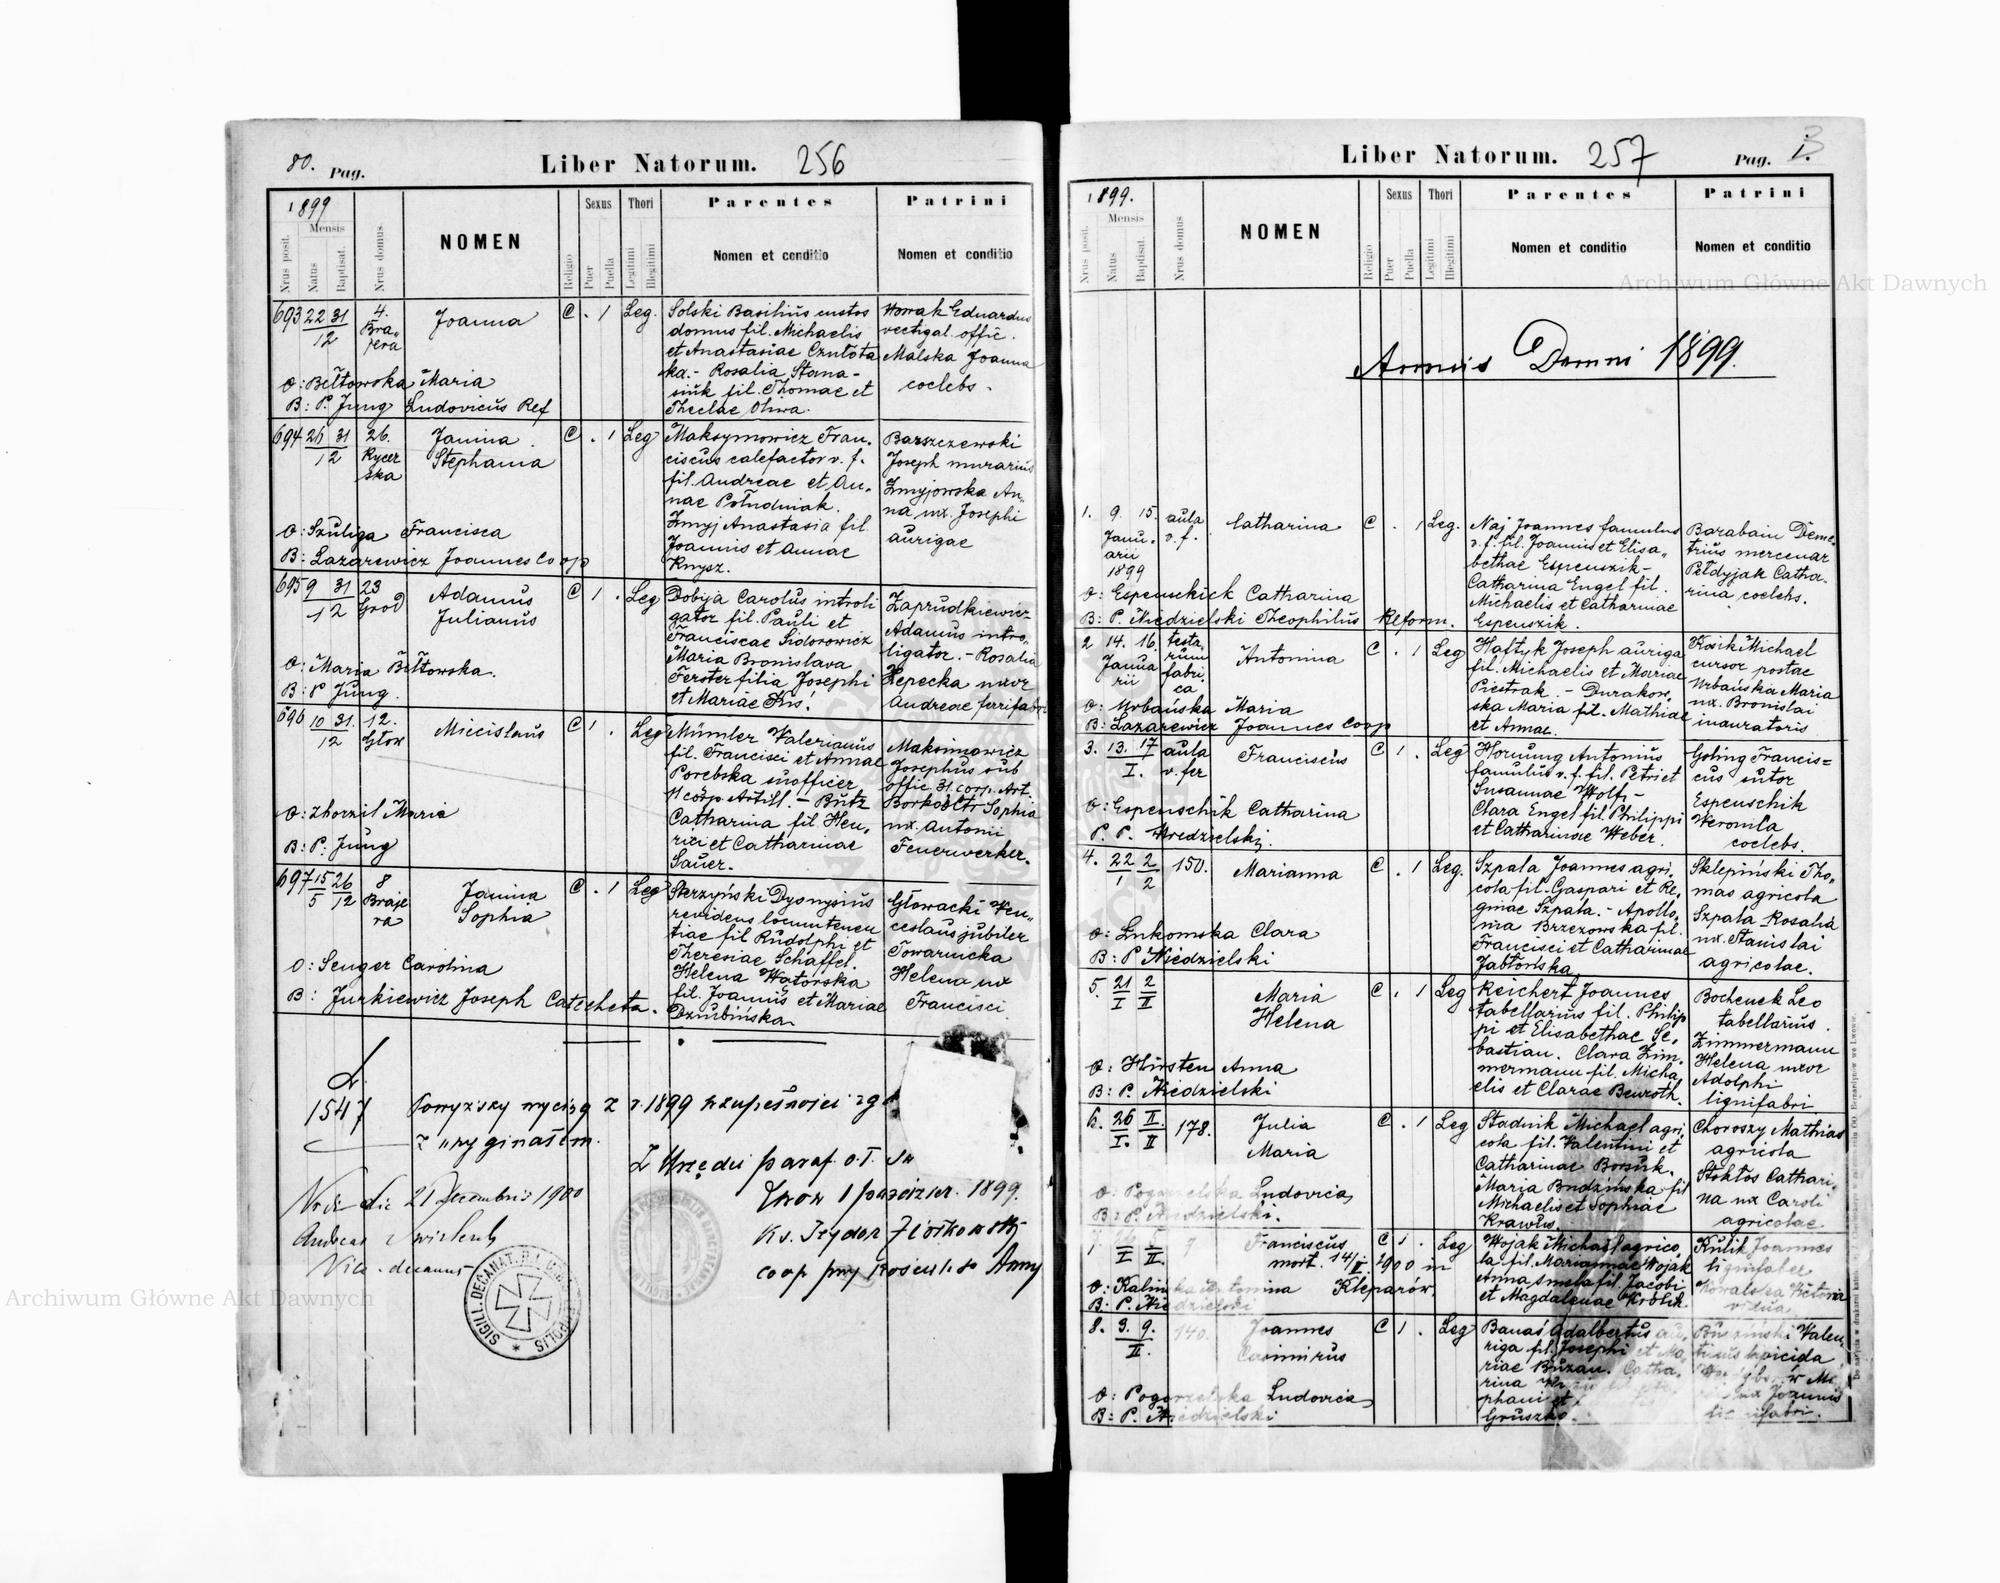 80. Pag. Liber Natorum. 256
1899
Mensis
Nrus posit.
Natus
Baptisat.
Nrus domus.
NOMEN
Religio
Sexus
Puer
Puella
Thori
Legitimi
Illegitimi
Parentes
Nomen et conditio
Patrini
Nomen et conditio
693 22 31
12
4.
Bra
jera
Joanna
C . 1 Leg.
Solski Basilius custos
domus fil. Michaelis
et Anastasiae
ka. - Rosalia Stana-
siuk fil. Thomae et
Theclae Oliwa.
Nowak Eduardus
vectigal. offic.
Malska Joanna
coelebs.
O: Bełtowska Maria
B: P. Jung Ludovicus Ref
694 26 31
12
26.
Rycer
ska
Janina
Stephania
C . 1 Leg
Maksymowicz Fran.
ciscus calefactor v. f.
fil. Andreae et An.
nae Południak.
Żmyj Anastasia fil
Joannis et Annae
Knysz.
Barszczewski
Joseph murarius
Żmyjowska An
na ux. Josephi
aurigae
O: Szuliga Francisca
B: Lazarewicz Joannes Coop
695 9 31
12
23
Grod
Adamus
Julianus
C 1 . Leg
Dobija Carolus introli
gator fil. Pauli et
Franciscae Sidorowicz
Maria Bronislava
Ferster filia Josephi
et Mariae
Zaprudkiewicz
Adamus intro
ligator. - Rosalia
Lepecka uxor
Andreae ferrifabri
O: Maria Bełtowska.
B: P Jung.
696 10 31.
12
12.
Miecislaus
C 1 . Leg
Mümler Valerianus
fil. Francisci et Annae
Porebska suofficer
11 corp. Artill. - Butz
Catharina fil. Hen,
rici et Catharinae
Sauer.
Maksimowicz
Josephus sub
offic 31. corp. Art.
Sophia
ux. Antonii
Feuerwerker.
O: Zhorzil Maria
B: P. Jung
697 15 26
5 12
8
Braje
ra
Janina
Sophia
C . 1 Leg
Sterzyński Dyonysius
revidens locumtenen
tiae fil Rudolphi et
Theresiae Schaffel.
Helena Wątorska
fil. Joannis et Mariae
Dziubińska
Głowacki Ven,
ceslaus jubiler
Towarnicka
Helena ux
Francisci
O: Senger Carolina
B: Jurkiewicz Joseph Catecheta.
L.
1547
Powyższy wyciąg z r. 1899 w zupełności zg
z oryginałem.
Z Urzędu paraf. o. ł.
Lwów 1 paździer. 1899.
Ks. Izydor
coop przy kościele Anny
Vidi die 21 Decembris 1900
Andreas
Vice-decanus
SIGILL. DECANAT. R. L.
Liber Natorum. 257 Pag. 1.
1899.
Mensis
Nrus posit.
Natus
Baptisat.
Nrus domus
NOMEN
Religio
Sexus
Puer
Puella
Thori
Legitimi
Illegitimi
Parentes
Nomen et conditio
Patrini
Nomen et conditio
Annus Domini 1899.
1. 9. 15.
Janu.
arii
1899
aula
v. f.
Catharina
C . 1 Leg.
Naj Joannes famulus
v. f. fil. Joannis et Elisa,
bethae Espenszik -
Catharina Engel fil.
Michaelis et Catharinae
Espenszik.
Barabain Deme
trius mercenar
Pełdyjak Catha.
rina coelebs.
O: Espenschick Catharina
B: P. Niedzielski Theophilus Reform.
2 14. 16.
Janua
rii
testa
rum
fabri.
ca
Antonina
C . 1 Leg
Haftyk Joseph auriga
fil. Michaelis et Mariae
Piestrak. - Durakow.
ska Maria fil. Mathiae
et Annae.
Michael
cursor postae
Urbańska Maria
ux. Bronislai
inauratoris
O: Urbańska Maria
B: Lazarewicz Joannes Coop
3. 13. 17
I.
aula
v. fer
Franciscus
C 1 . Leg
Hornung Antonius
famulus v. f. fil. Petri et
Susannae Wolf, -
Clara Engel fil. Philippi
et Catharinae Weber.
Goting Francis=
cus sutor
Espenschik
Veronica
coelebs.
O: Espenschik Catharina
P. P. Niedzielski.
4. 22 2
1 2
150.
Marianna
C . 1 Leg.
Szpala Joannes agri,
cola fil. Gaspari et Re,
ginae Szpala. - Apollo,
nia Brzezowska fil.
Francisci et Catharinae
Jabłońska
Sklepiński Tho,
mas agricola
Szpala Rosalia
ux. Stanislai
agricolae.
O: Lukomska Clara
B: P Niedzielski
5. 21 2
I II
Maria
Helena
C . 1 Leg
Reichert Joannes
tabellarius fil. Philip
pi et Elisabethae Se,
bastian. Clara Zim,
mermann fil. Micha
elis et Clarae Beuroth.
Bochenek Leo
tabellarius.
Zimmermann
Helena uxor
Adolphi
lignifabri
O: Hirsten Anna
B: P. Niedzielski
6. 26 II.
I. II
178.
Julia
Maria
C . 1 Leg
Stadnik Michael agri,
cola fil. Valentini et
Catharinae Borsuk.
Maria Budzińska fil
Michaelis et Sophiae
Krawiec.
Choroszy Mathias
agricola
Stokłos Cathari,
na ux Caroli
agricolae
O: Pogorzelska Ludovica,
B: P. Niedzielski.
7. 26 5
I II.
9
Franciscus
mort. 14/II 1900 in
Kleparów.
C 1 . Leg
Wojak Michael agrico,
la fil. Mariannae Wojak
Anna Smela fil. Jacobi
et Magdalenae Królik.
Kulik Joannes
lignifaber
Kowalska Victoria
vidua
O: Kalinska Antonina
B: P. Niedzielski
8. 3. 9.
II.
140.
Joannes
Casimirus
C 1 . Leg
Banaś Adalbertus au,
riga fil. Josephi et Ma,
riae Buzan. Catha,
rina
phani et
Gruszka.
Valen,
tinus lapicida
ux Joannis
lignifabri.
O: Pogorzelska Ludovica,
B: P. Niedzielski
Archiwum Główne Akt Dawnych
Archiwum Główne Akt Dawnych